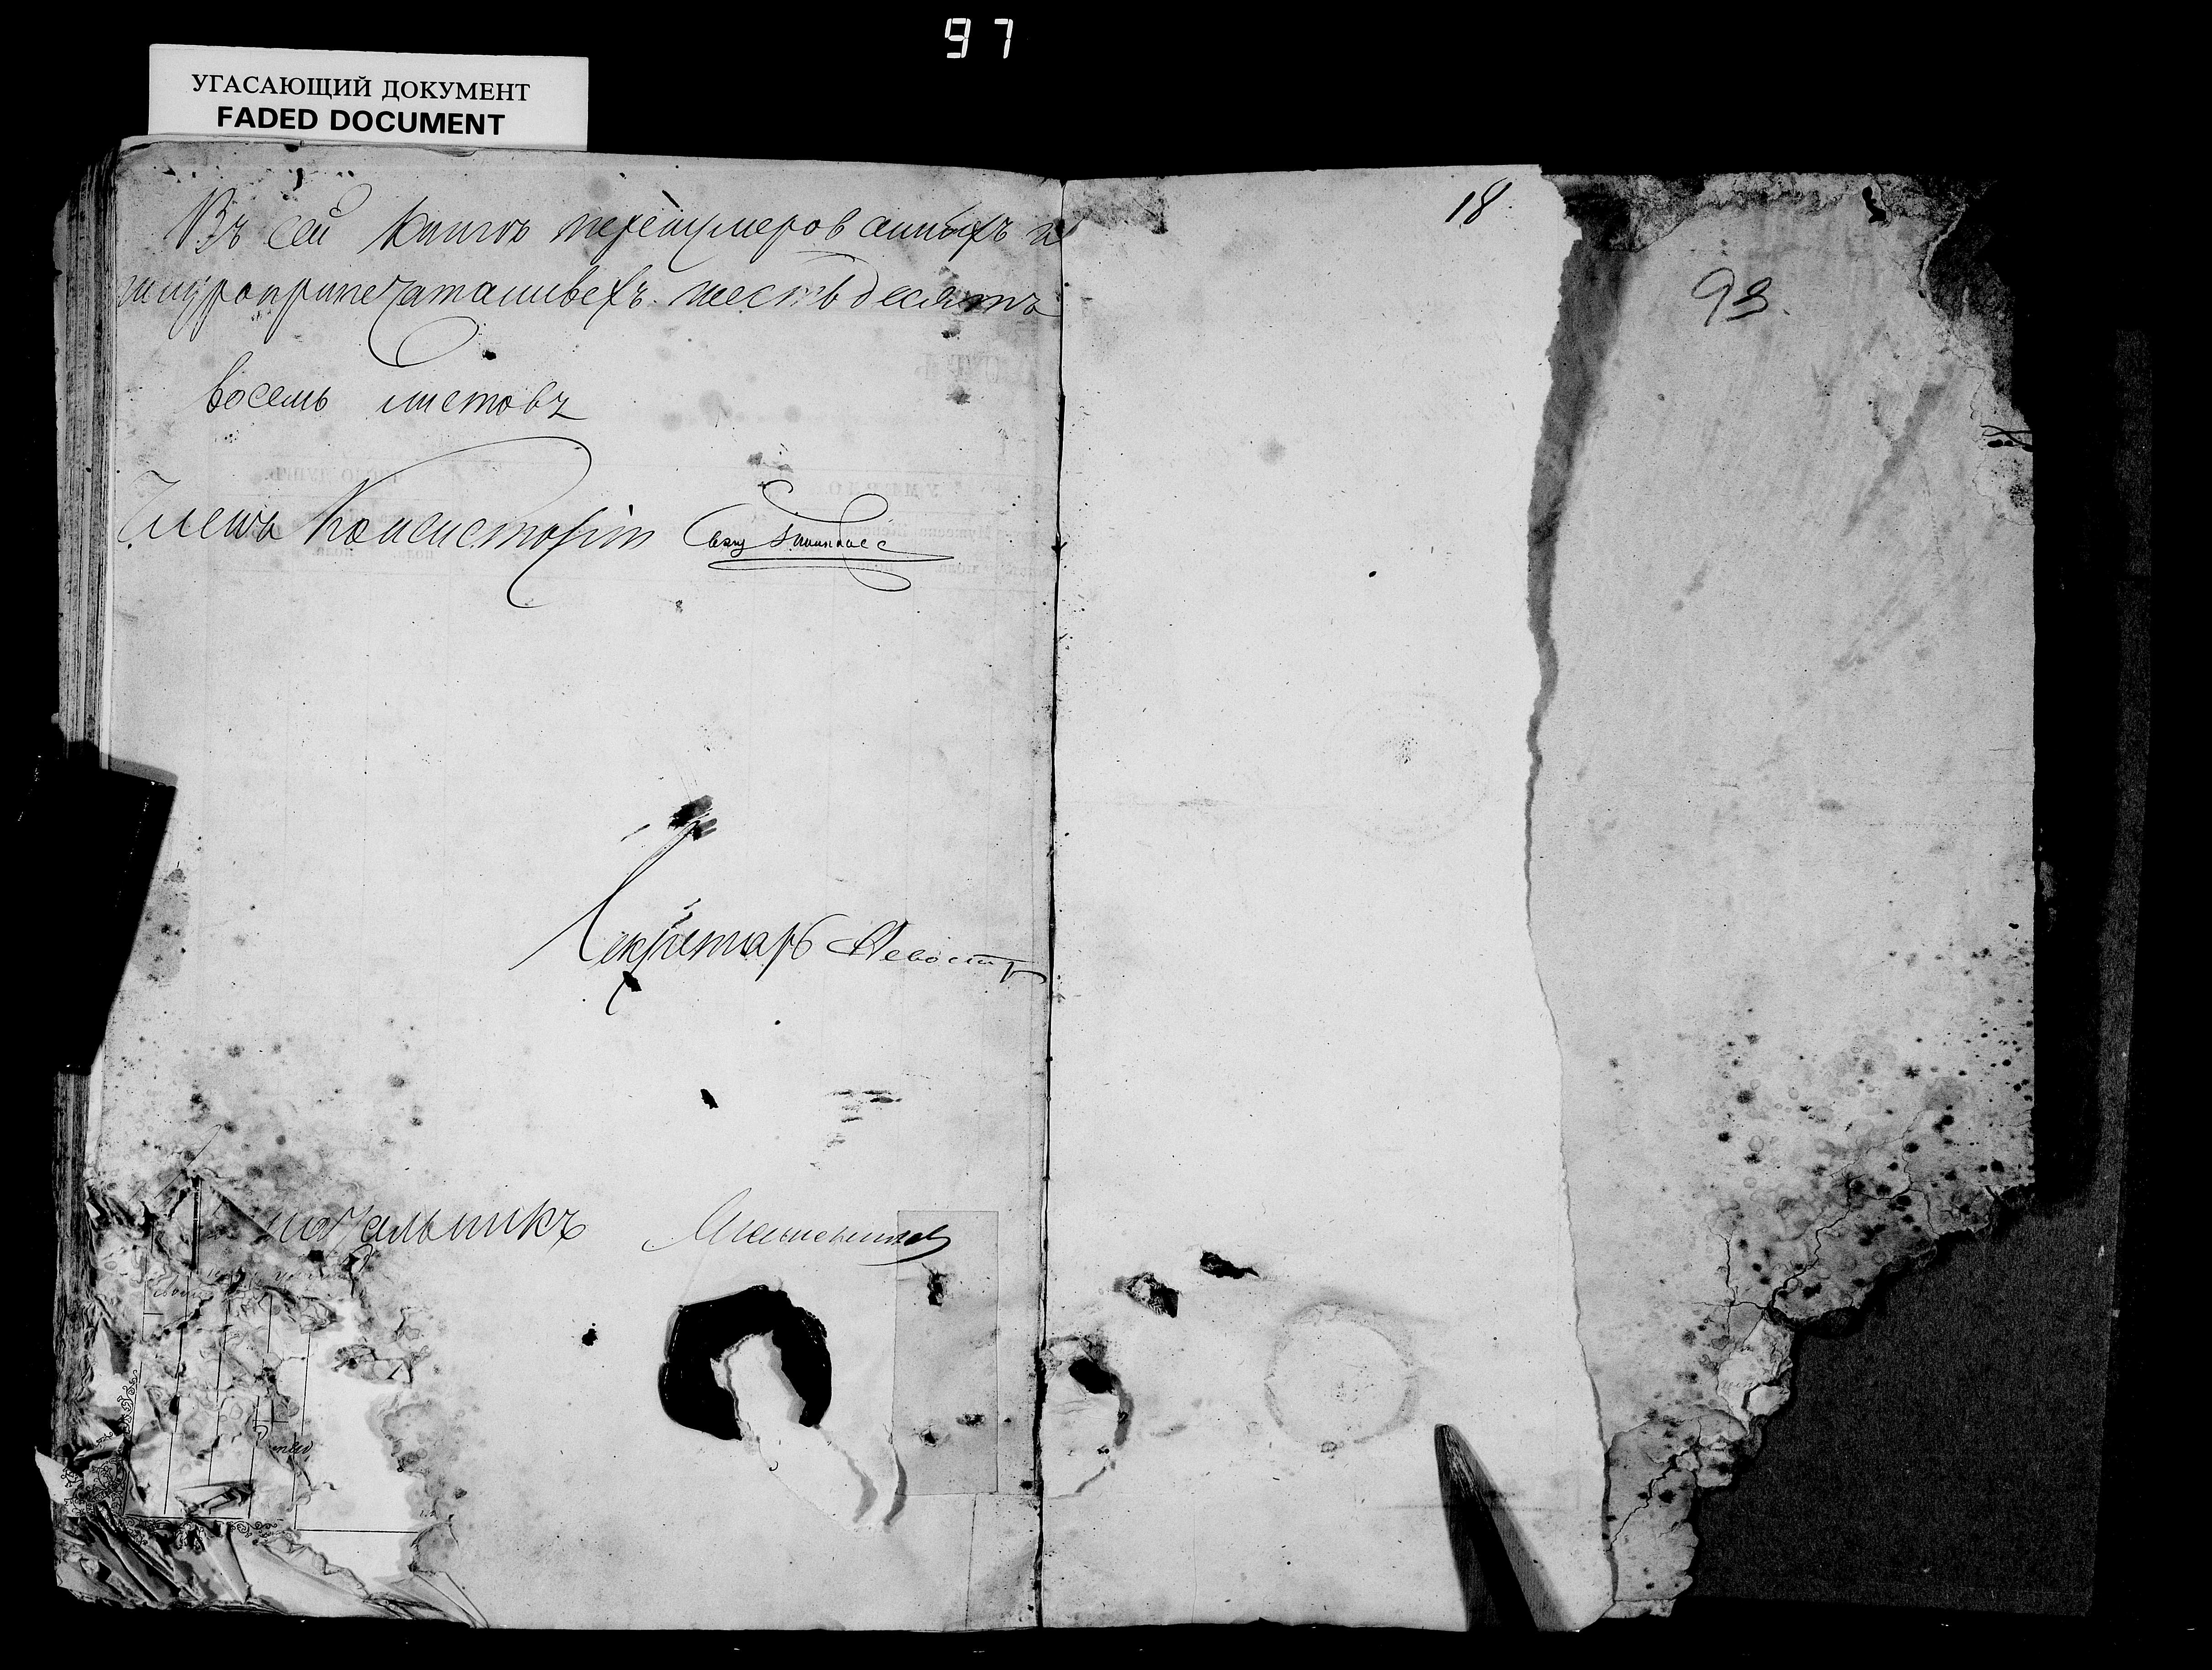 97
УГАСАЮЩИЙ ДОКУМЕНТ
FADED DOCUMENT
Въ сей книгѣ перенумерованныхъ и
шнуроприпечатанныхъ шестьдесятъ
восемь листовъ
Членъ Консисторіи Свящ
Секретарь Невостр
начальникъ
18
93.